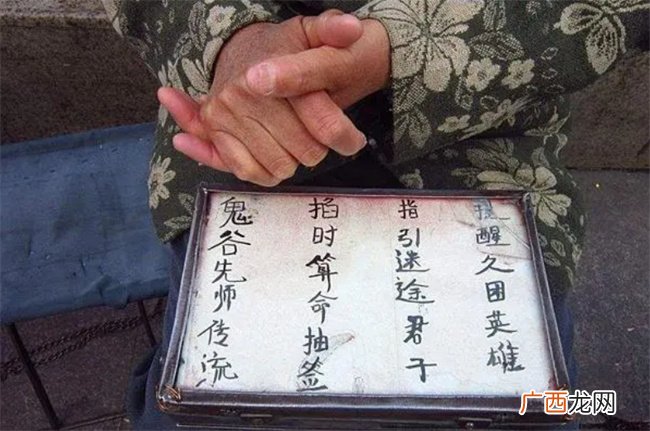 鬼谷先师传流
掐时算命抽签
指引迷途君子
提醒久困英雄
广西龙网